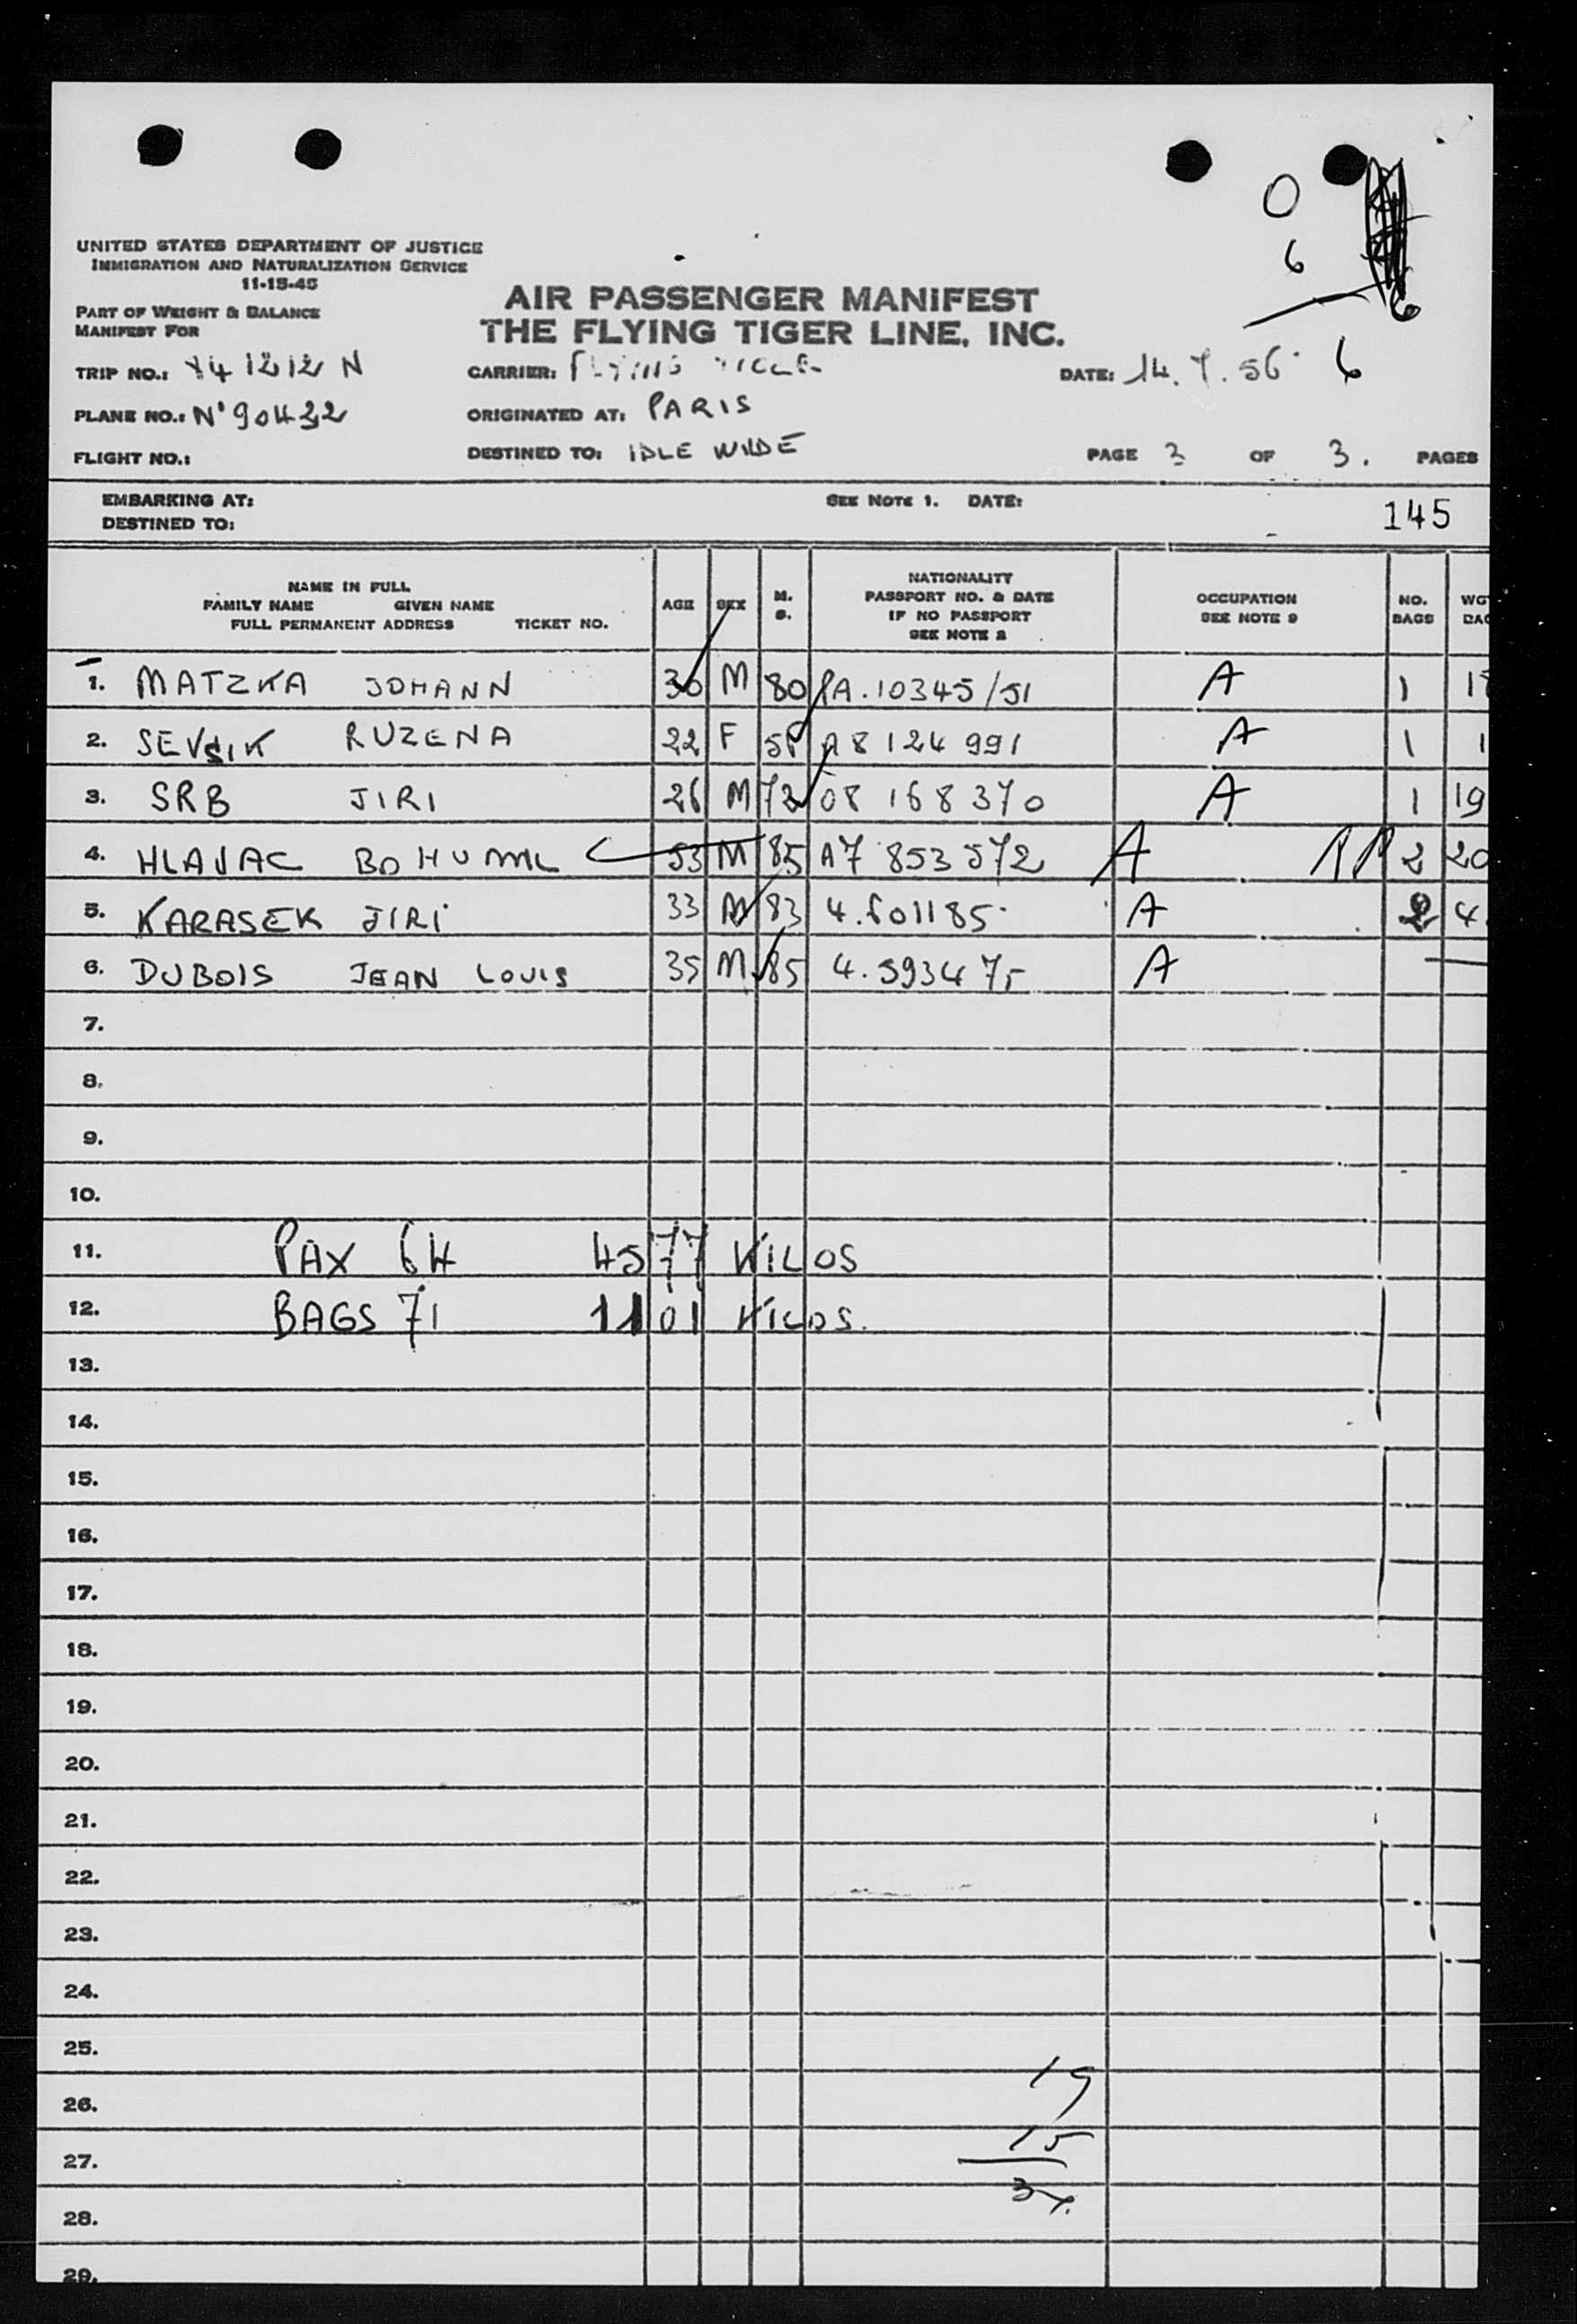 0
6
6
UNITED STATES DEPARTMENT OF JUSTICE
IMMIGRATION AND NATURALIZATION SERVICE
11-15-45
AIR PASSENGER MANIFEST
PART OF WEIGHT & BALANCE
MANIFEST FOR
THE FLYING TIGER LINE, INC.
TRIP NO.: 141212 N CARRIER: FLYING DATE: 14.7.56 6
PLANE NO.: N°90432 ORIGINATED AT: PARIS
FLIGHT NO.: DESTINED TO: IDLE WILDE PAGE 3 OF 3. PAGES
EMBARKING AT: SEE NOTE 1. DATE:
DESTINED TO: 145
NAME IN FULL AGE SEX M. S. NATIONALITY OCCUPATION NO. WG
FAMILY NAME GIVEN NAME PASSPORT NO. & DATE SEE NOTE 9 BAGS BAG
FULL PERMANENT ADDRESS TICKET NO. IF NO PASSPORT
SEE NOTE 2
1. MATZKA JOHANN 30 M 80 PA.10345/51 A 1
2. SEVSIK RUZENA 22 F A8124991 A 1
3. SRB JIRI 26 M 72 08168370 A 1 19
4. HLAVAC BOHUMIL 53 M 85 A7853572 A 2 20
5. KARASEK JIRI 33 M 83 4.601185 A 2 4
6. DUBOIS JEAN LOUIS 35 M 85 4.593475 A
7.
8.
9.
10.
11. PAX 64 4577 KILOS
12. BAGS 71 1101 KILOS.
13.
14.
15.
16.
17.
18.
19.
20.
21.
22.
23.
24.
25.
26. 19
27. 15
28. 34
29.